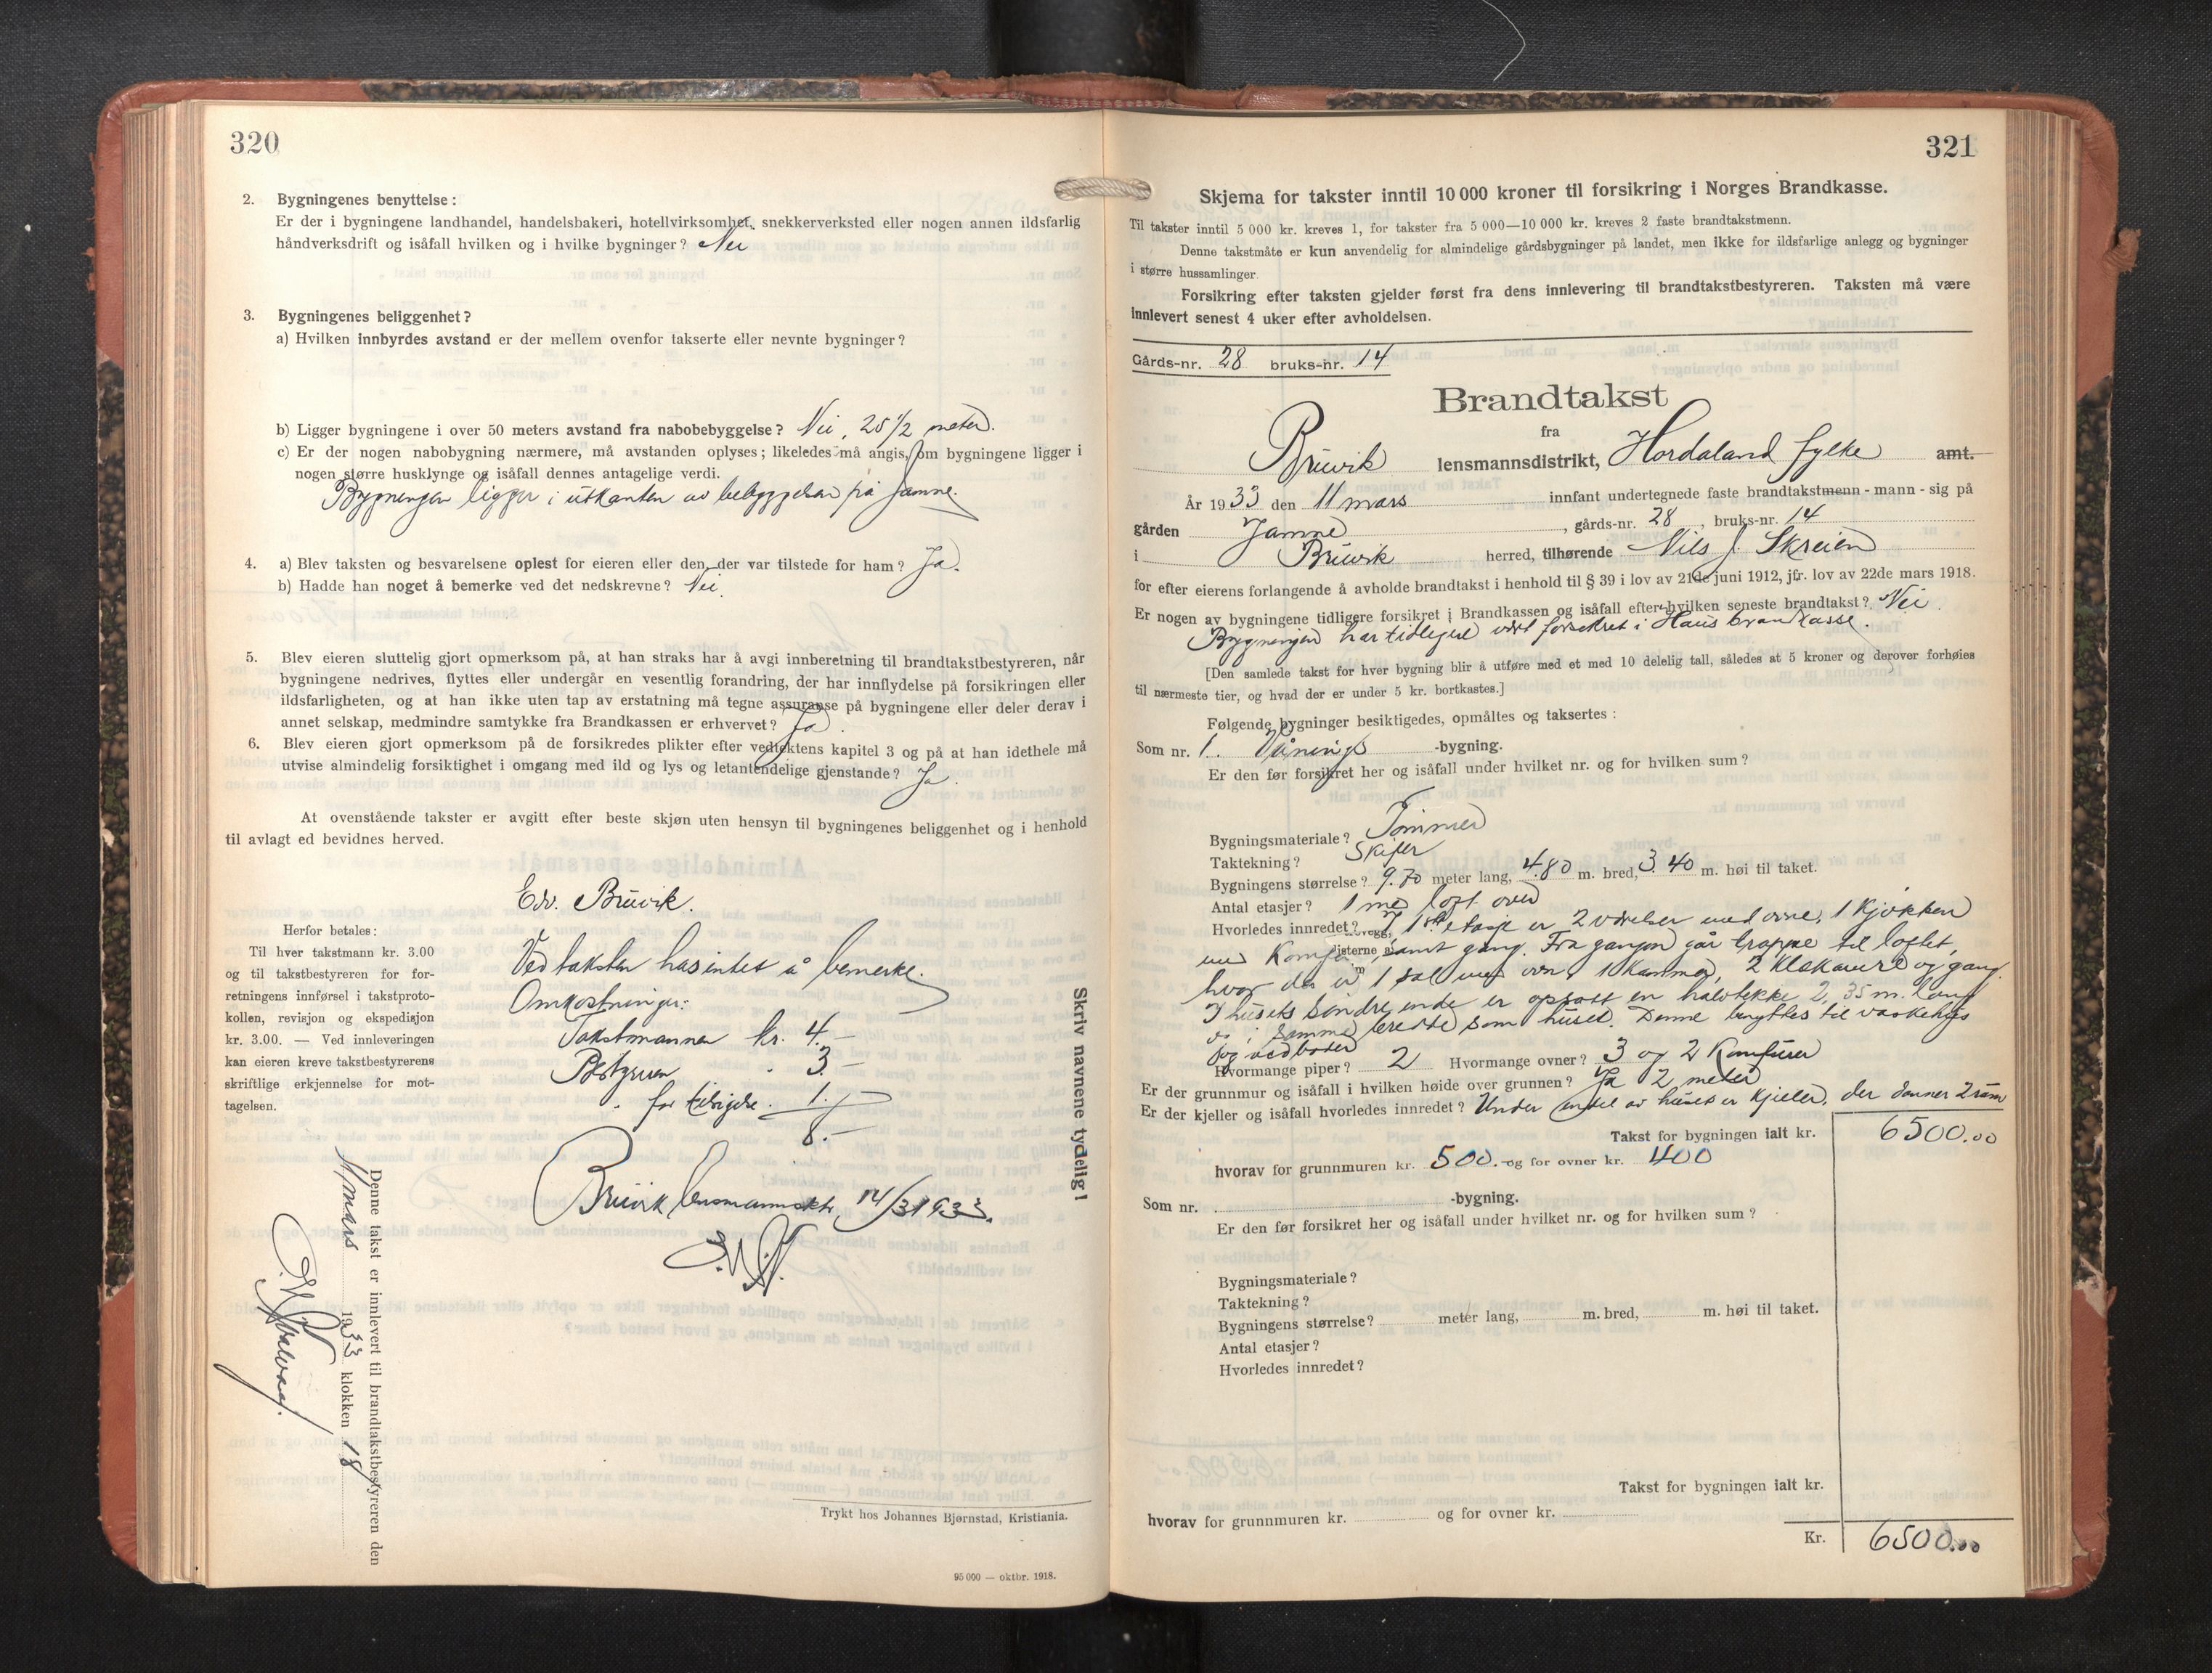 320
2. Bygningenes benyttelse:
Er der i bygningene landhandel, handelsbakeri, hotellvirksomhet, snekkerverksted eller nogen annen ildsfarlig
håndverksdrift og isåfall hvilken og i hvilke bygninger? Nei
3. Bygningenes beliggenhet?
a) Hvilken innbyrdes avstand er der mellem ovenfor takserte eller nevnte bygninger?
b) Ligger bygningene i over 50 meters avstand fra nabobebyggelse? Nei, 25 1/2 meter.
c) Er der nogen nabobygning nærmere, må avstanden oplyses; likeledes må angis, om bygningene ligger i
nogen større husklynge og isåfall dennes antagelige verdi.
Bygningen ligger i utkanten av bebyggelsen på Jamne.
4. a) Blev taksten og besvarelsene oplest for eieren eller den, der var tilstede for ham? Ja.
b) Hadde han noget å bemerke ved det nedskrevne? Nei.
5. Blev eieren sluttelig gjort opmerksom på, at han straks har å avgi innberetning til brandtakstbestyreren, når
bygningene nedrives, flyttes eller undergår en vesentlig forandring, der har innflydelse på forsikringen eller
ildsfarligheten, og at han ikke uten tap av erstatning må tegne assuranse på bygningene eller deler derav i
annet selskap, medmindre samtykke fra Brandkassen er erhvervet? Ja.
6. Blev eieren gjort opmerksom på de forsikredes plikter efter vedtektens kapitel 3 og på at han idethele må
utvise almindelig forsiktighet i omgang med ild og lys og letantendelige gjenstande? Ja.
At ovenstående takster er avgitt efter beste skjøn uten hensyn til bygningenes beliggenhet og i henhold
til avlagt ed bevidnes herved.
Edv. Bruvik.
Herfor betales:
Til hver takstmann kr. 3.00
og til takstbestyreren for for-
retningens innførsel i takstproto-
kollen, revisjon og ekspedisjon
kr. 3.00. — Ved innleveringen
kan eieren kreve takstbestyrerens
skriftlige erkjennelse for mot-
tagelsen.
Ved taksten has intet å bemerke.
Omkostninger:
Takstmannen kr. 4.-
Bestyreren " 3.-
" for tilsigelse 1.-
8.-
Bruvik lensmannsktr. 14/3 1933.
Skriv navnene tydelig!
Denne takst er innlevert til brandtakstbestyreren den
11 mars 1933 klokken 18
Trykt hos Johannes Bjørnstad, Kristiania.
95 000 — oktbr. 1918.
321
Skjema for takster inntil 10 000 kroner til forsikring i Norges Brandkasse.
Til takster inntil 5 000 kr. kreves 1, for takster fra 5 000—10 000 kr. kreves 2 faste brandtakstmenn.
Denne takstmåte er kun anvendelig for almindelige gårdsbygninger på landet, men ikke for ildsfarlige anlegg og bygninger
i større hussamlinger.
Forsikring efter taksten gjelder først fra dens innlevering til brandtakstbestyreren. Taksten må være
innlevert senest 4 uker efter avholdelsen.
Gårds-nr. 28 bruks-nr. 14
Brandtakst
fra
Bruvik lensmannsdistrikt, Hordaland fylke amt.
År 1933 den 11 mars innfant undertegnede faste brandtakstmenn - mann - sig på
gården Jamne, gårds-nr. 28, bruks-nr. 14
i Bruvik herred, tilhørende Nils J. Skreien
for efter eierens forlangende å avholde brandtakst i henhold til § 39 i lov av 21de juni 1912, jfr. lov av 22de mars 1918.
Er nogen av bygningene tidligere forsikret i Brandkassen og isåfall efter hvilken seneste brandtakst? Nei.
Bygningen har tidligere vært forsikret i Haus brandkasse.
[Den samlede takst for hver bygning blir å utføre med et med 10 delelig tall, således at 5 kroner og derover forhøies
til nærmeste tier, og hvad der er under 5 kr. bortkastes.]
Følgende bygninger besiktigedes, opmåltes og taksertes:
Som nr. 1. Vånings -bygning.
Er den før forsikret her og isåfall under hvilket nr. og for hvilken sum?
Bygningsmateriale? Tømmer
Taktekning? Skifer
Bygningens størrelse? 9.70 meter lang, 4.80 m. bred, 3.40 m. høi til taket.
Antal etasjer? 1 med loft over
Hvorledes innredet? I 1ste etasje er 2 værelser med ovne, 1 kjøkken
med komfyr, samt gang. Fra gangen går trappe til loftet,
hvor der er 1 sal med ovn, 1 kammer, 2 kleskamre og gang.
I husets søndre ende er opsatt en halvtekke 2,35 m. lang
og i samme bredde som huset. Denne benyttes til vaskehus
og vedboder
Hvormange piper? 2 Hvormange ovner? 3 og 2 komfurer
Er der grunnmur og isåfall i hvilken høide over grunnen? Ja 2 meter
Er der kjeller og isåfall hvorledes innredet? Under endel av huset er kjeller, der danner 2 rum
Takst for bygningen ialt kr. 6500.00
hvorav for grunnmuren kr. 500.- og for ovner kr. 400
Som nr. -bygning.
Er den før forsikret her og isåfall under hvilket nr. og for hvilken sum?
Bygningsmateriale?
Taktekning?
Bygningens størrelse? meter lang, m. bred, m. høi til taket.
Antal etasjer?
Hvorledes innredet?
Takst for bygningen ialt kr.
hvorav for grunnmuren kr. og for ovner kr.
Kr. 6500.00